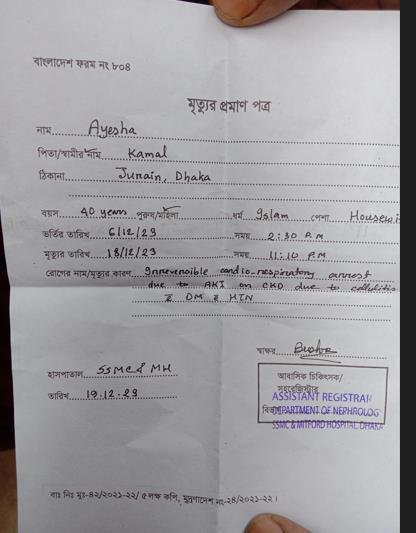 বাংলাদেশ ফরম নং ৮০৪
মৃত্যুর প্রমাণ পত্র
নাম..... Ayesha
পিতা/স্বামীর নাম Kamal
ঠিকানা Jurain, Dhaka
বয়স 40 years পুরুষ/মহিলা ধর্ম Islam পেশা Housewi
ভর্তির তারিখ 6/12/23 সময় 2:30 P.M
মৃত্যুর তারিখ 18/12/23 সময় 11:10 P.M
রোগের নাম/মৃত্যুর কারণ Irreversible cardio-respiratory arrest
due to AKI on CKD due to cellulitis
DM HTN
স্বাক্ষর
হাসপাতাল SSMC & MH
তারিখ 19.12.23
আবাসিক চিকিৎসক/
সহরেজিষ্ট্রার
ASSISTANT REGISTRAR
বিভাগ DEPARTMENT OF NEPHROLOG
SSMC & MITFORD HOSPITAL, DHAKA
বাঃ নিঃ মুঃ-৪২/২০২১-২২/ ৫ লক্ষ কপি, মুদ্রণাদেশ নং-২৪/২০২১-২২।